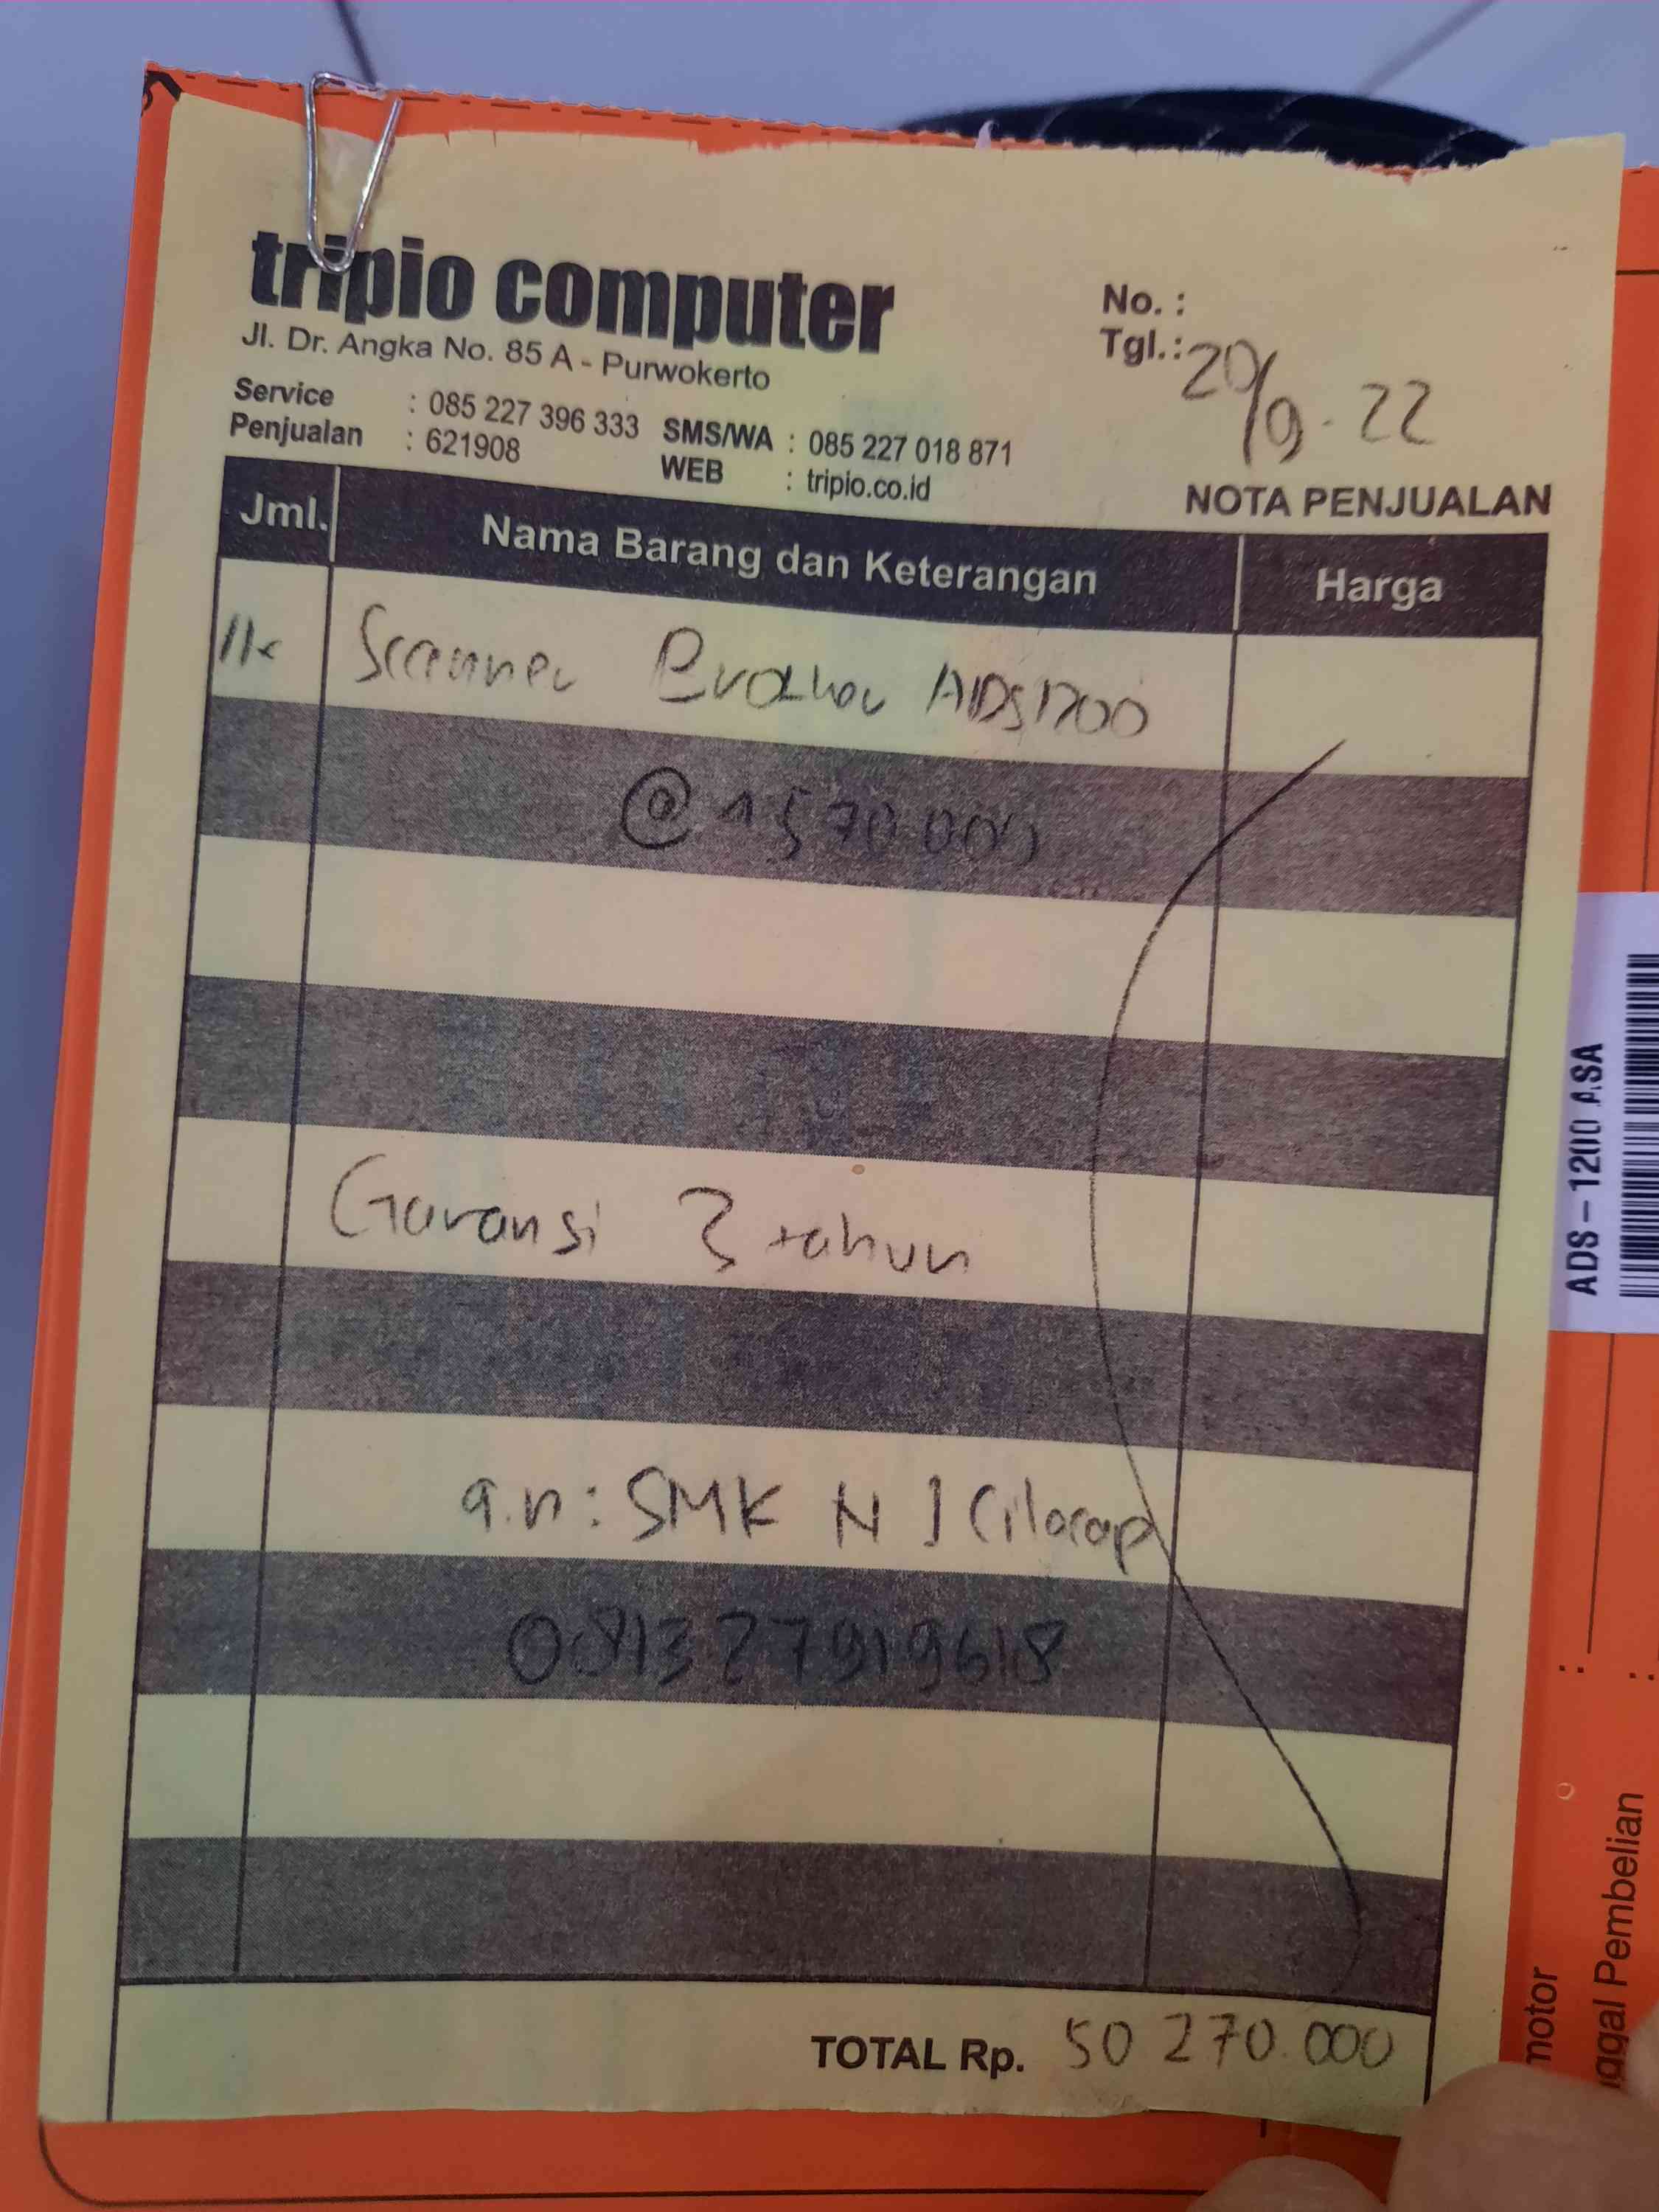 tripio computer
Jl. Dr. Angka No. 85 A - Purwokerto
Service : 085 227 396 333 SMS/WA : 085 227 018 871
Penjualan : 621908 WEB : tripio.co.id
No. :
Tgl.: 20/9-22
NOTA PENJUALAN
Jml. Nama Barang dan Keterangan Harga
Scanner Brother ADS1200
@ 4570.000
Garansi 3 tahun
a.n: SMK N 1 Cilacap
081327919618
TOTAL Rp. 50 270.000
ADS-1200 ASA
Pembelian